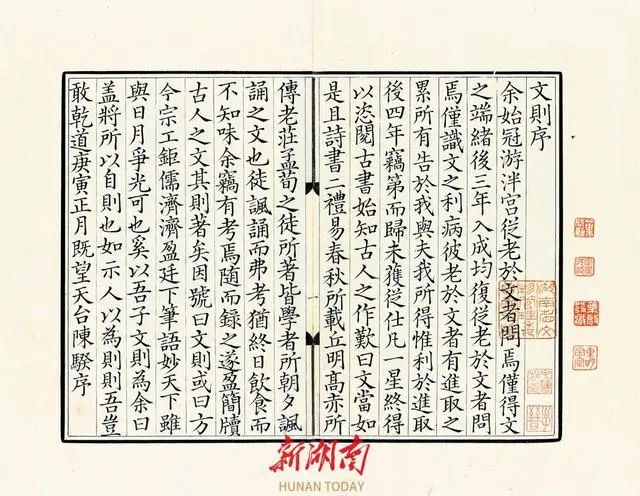 文則序
余始冠游泮宮從老於文者問焉僅得文
之端緒後三年入成均復從老於文者問
焉僅識文之利病彼老於文者有進取之
累所有告於我與夫我所得惟利於進取
後四年竊第而歸未獲從仕凡一星終得
以恣閱古書始知古人之作歎曰文當如
是且詩書二禮易春秋所載丘明高赤所
傳老莊孟荀之徒所著皆學者所朝夕諷
誦之文也徒諷誦而弗考猶終日飲食而
不知味余竊有考焉隨而錄之遂盈簡牘
古人之文其則著矣因號曰文則或曰方
今宗工鉅儒濟濟盈廷下筆語妙天下雖
與日月爭光可也奚以吾子文則為余曰
蓋將所以自則也如示人以為則則吾豈
敢乾道庚寅正月既望天台陳騤序
一
新湖南
HUNAN TODAY